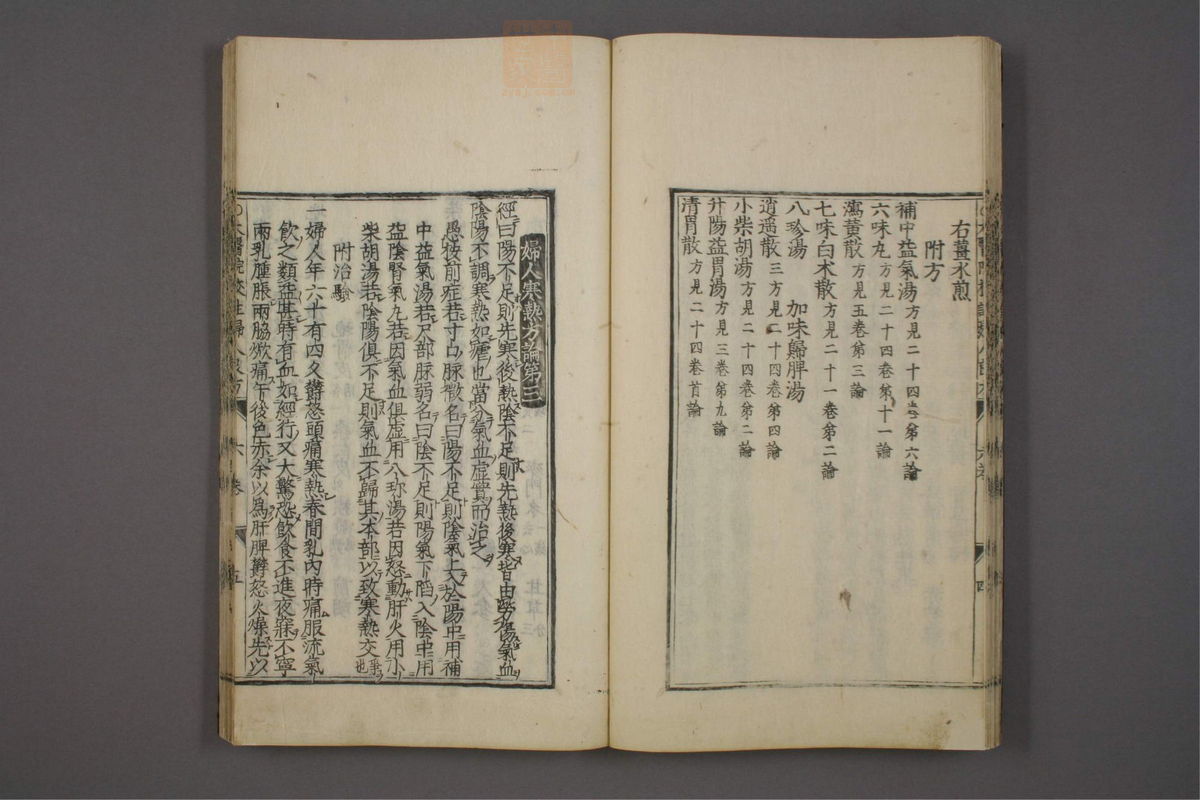 右薑水煎
附方
補中益氣湯 方見二十四卷第六論
六味丸 方見二十四卷第十一論
瀉黃散 方見五卷第三論
七味白朮散 方見二十一卷第二論
八珍湯 加味歸脾湯
逍遥散 三方見二十四卷第四論
小柴胡湯 方見二十四卷第二論
升陽益胃湯 方見三卷第九論
清胃散 方見二十四卷首論
四
婦人寒熱方論第三
經曰陽不足則先寒後熱陰不足則先熱後寒皆由勞傷氣血
陰陽不調寒熱如瘧也當分氣血虛實而治之
愚按前症若寸口脉微名曰陽不足則陰氣上入於陽中用補
中益氣湯若尺部脉弱名曰陰不足則陽氣下䧟入陰中用
益陰腎氣丸若因氣血俱虛用八珍湯若因怒動肝火用小
柴胡湯若陰陽俱不足則氣血不歸其本部以致寒熱交爭也
附治驗
一婦人年六十有四久欝怒頭痛寒熱春間乳內時痛服流氣
飲之類益甚時有血如經行又大驚恐飲食不進夜寐不寧
兩乳腫脹兩脇㷔痛午後色赤余以爲肝脾欝怒火燥先以
太醫院校註婦人良方 六卷 五